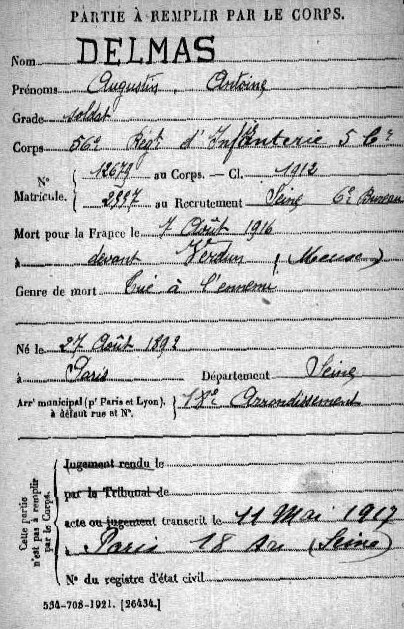 PARTIE À REMPLIR PAR LE CORPS.
Nom DELMAS
Prénoms Augustin, Antoine
Grade soldat
Corps 56e Régt d'Infanterie 5 Cie
N° Matricule. 12679 au Corps. — Cl. 1912
2327 au Recrutement Seine 6e Bureau
Mort pour la France le 7 Août 1916
à devant Verdun (Meuse)
Genre de mort Tué à l'ennemi
Né le 27 Août 1892
à Paris Département Seine
Arrt municipal (pr Paris et Lyon), à défaut rue et N°. 18e Arrondissement
Cette partie n'est pas à remplir par le Corps.
Jugement rendu le
par le Tribunal de
acte ou jugement transcrit le 11 Mai 1917
à Paris 18 Arr (Seine)
N° du registre d'état civil
534-708-1921. [26434.]